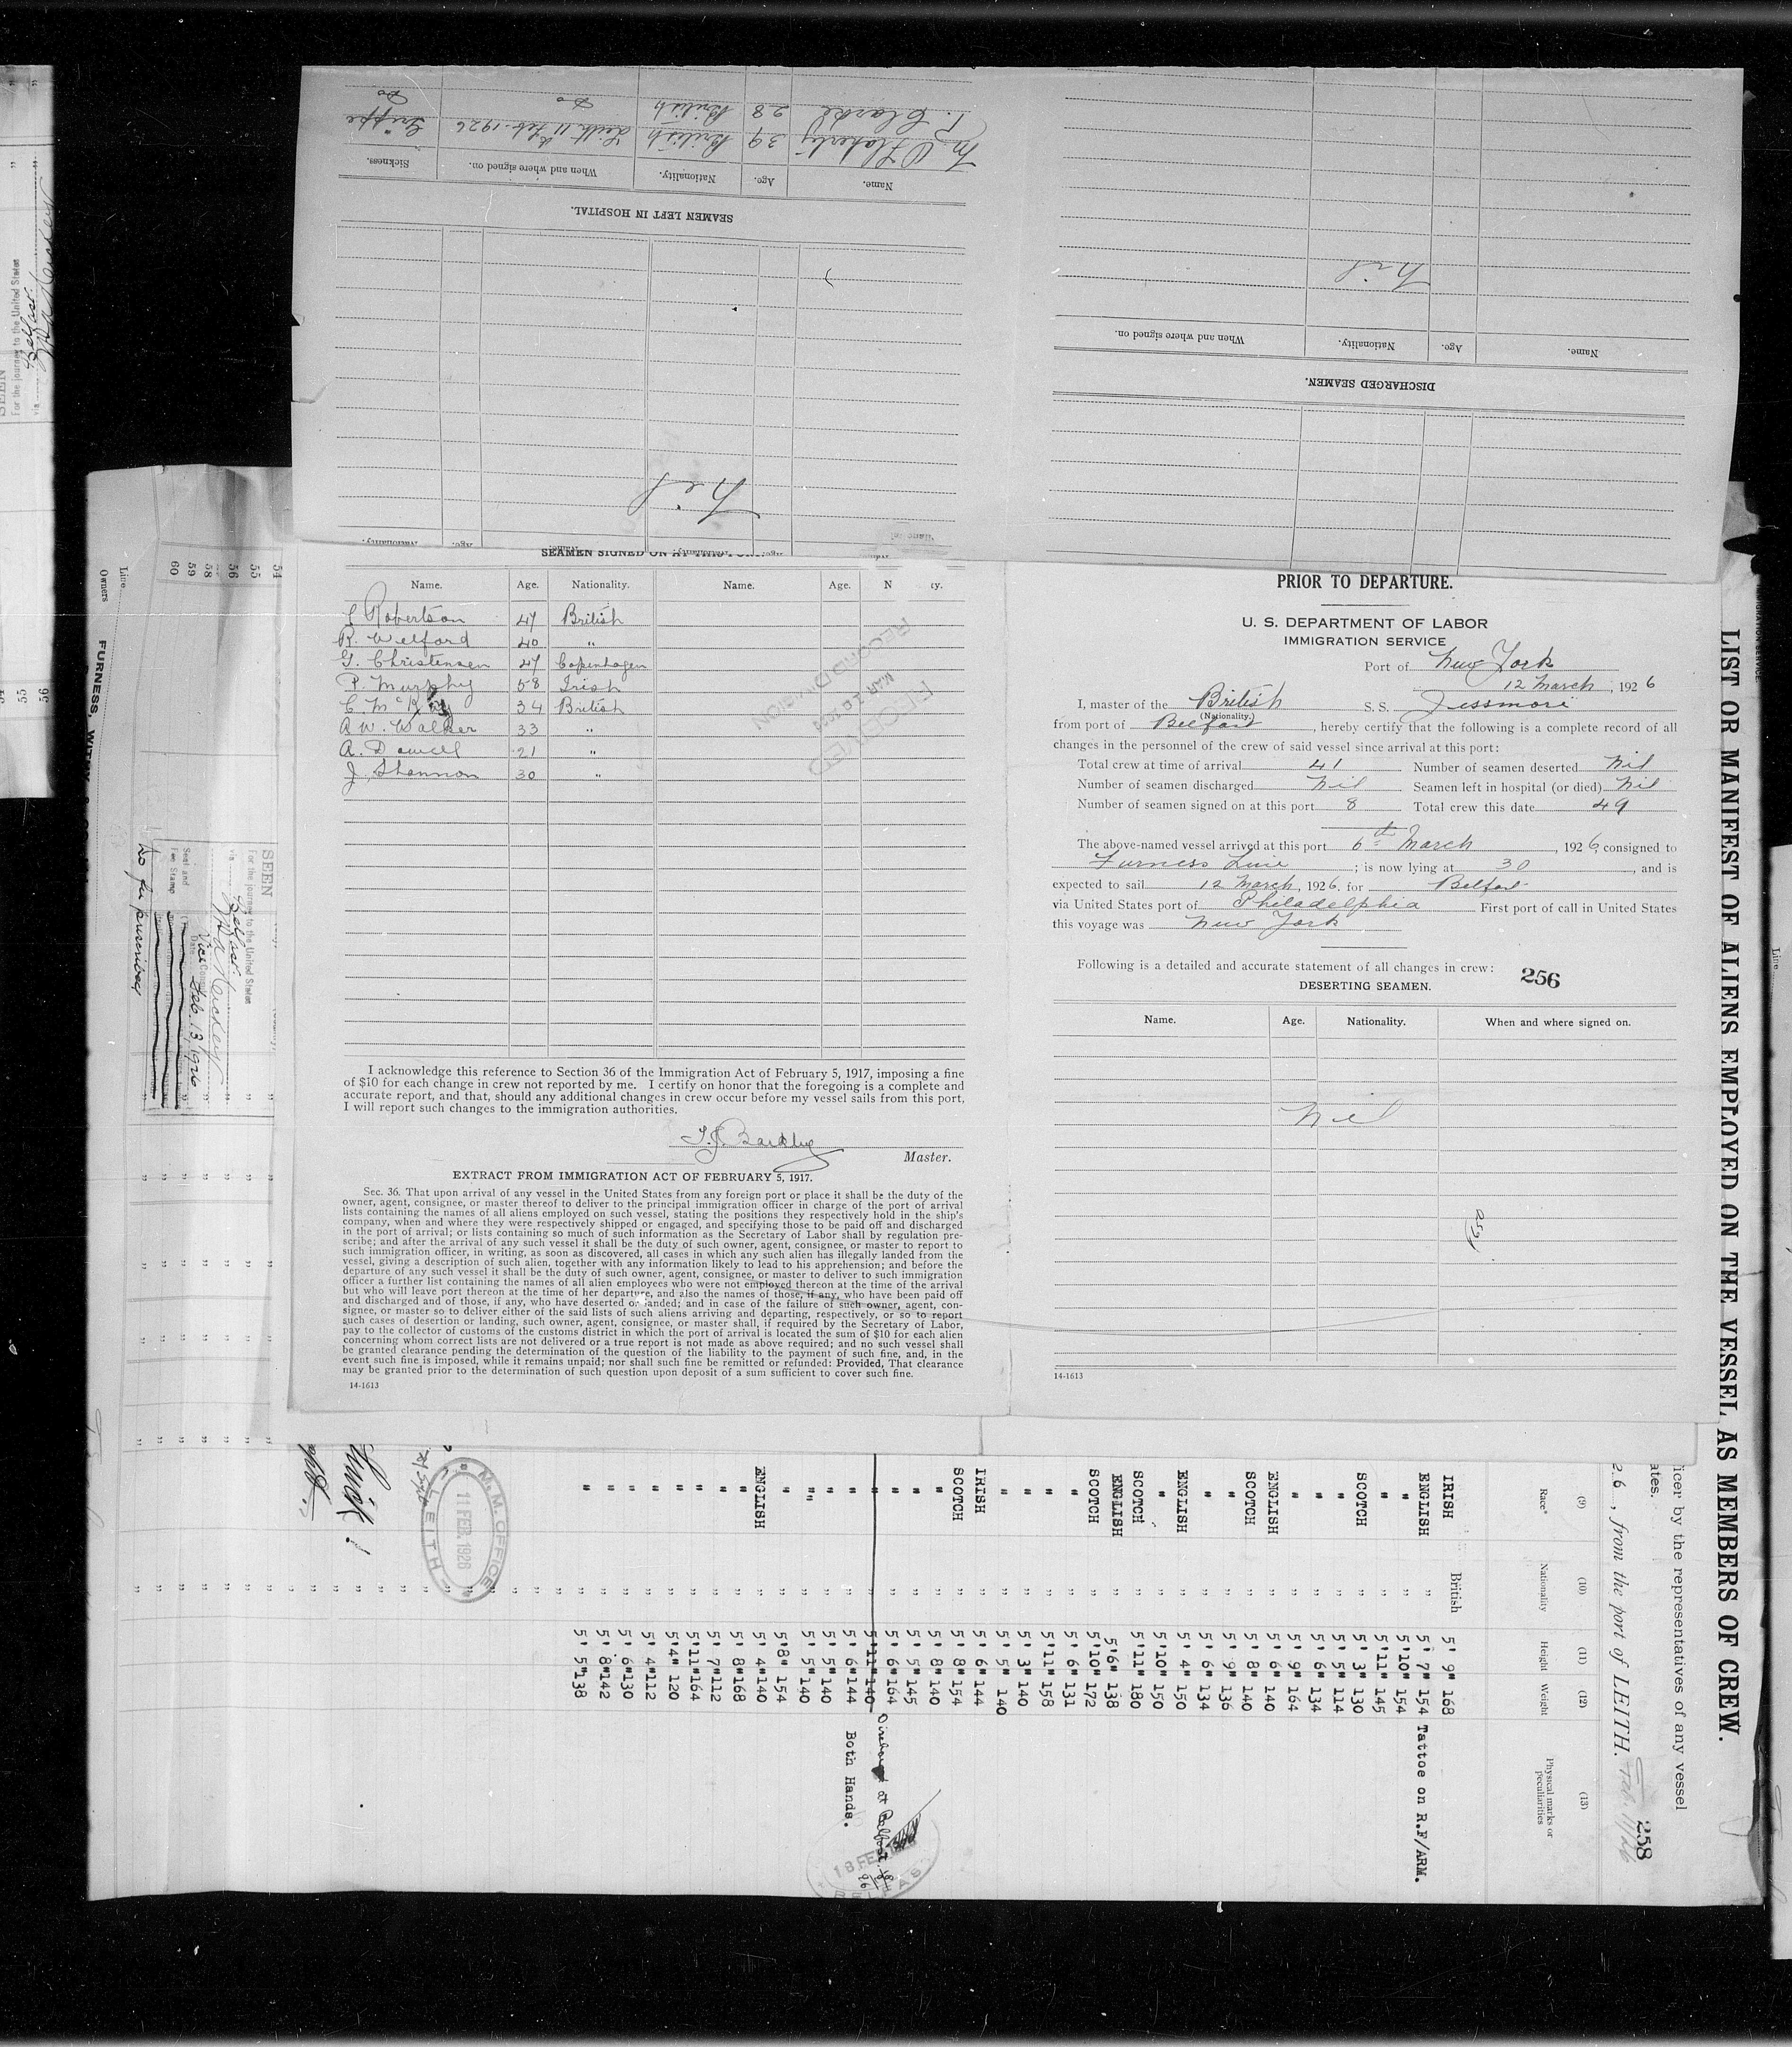 SEAMEN LEFT IN HOSPITAL.
Name. Age. Nationality. When and where signed on. Sickness.
M. O'Flaherty 39 British Leith 11 Feb. 1926 Grippe
P. Clarke 28 British Do Do
nil
Name. Age. Nationality.
DISCHARGED SEAMEN.
Name. Age. Nationality. When and where signed on.
nil
SEAMEN SIGNED ON AT THIS
Name. Age. Nationality. Name. Age.
Robertson 47 British
R. Welford 40 "
G. Christensen 47 Copenhagen
P. Murphy 58 Irish
C. McKay 34 British
R W. Walker 33 "
A. Dowell 21 "
J. Shannon 30 "
RECEIVED
RECORD DIVISION
I acknowledge this reference to Section 36 of the Immigration Act of February 5, 1917, imposing a fine
of $10 for each change in crew not reported by me. I certify on honor that the foregoing is a complete and
accurate report, and that, should any additional changes in crew occur before my vessel sails from this port,
I will report such changes to the immigration authorities.
Master.
EXTRACT FROM IMMIGRATION ACT OF FEBRUARY 5, 1917.
Sec. 36. That upon arrival of any vessel in the United States from any foreign port or place it shall be the duty of the
owner, agent, consignee, or master thereof to deliver to the principal immigration officer in charge of the port of arrival
lists containing the names of all aliens employed on such vessel, stating the positions they respectively hold in the ship's
company, when and where they were respectively shipped or engaged, and specifying those to be paid off and discharged
in the port of arrival; or lists containing so much of such information as the Secretary of Labor shall by regulation pre-
scribe; and after the arrival of any such vessel it shall be the duty of such owner, agent, consignee, or master to report to
such immigration officer, in writing, as soon as discovered, all cases in which any such alien has illegally landed from the
vessel, giving a description of such alien, together with any information likely to lead to his apprehension; and before the
departure of any such vessel it shall be the duty of such owner, agent, consignee, or master to deliver to such immigration
officer a further list containing the names of all alien employees who were not employed thereon at the time of the arrival
but who will leave port thereon at the time of her departure, and also the names of those, if any, who have been paid off
and discharged and of those, if any, who have deserted or landed; and in case of the failure of such owner, agent, con-
signee, or master so to deliver either of the said lists of such aliens arriving and departing, respectively, or so to report
such cases of desertion or landing, such owner, agent, consignee, or master shall, if required by the Secretary of Labor,
pay to the collector of customs of the customs district in which the port of arrival is located the sum of $10 for each alien
concerning whom correct lists are not delivered or a true report is not made as above required; and no such vessel shall
be granted clearance pending the determination of the question of the liability to the payment of such fine, and, in the
event such fine is imposed, while it remains unpaid; nor shall such fine be remitted or refunded: Provided, That clearance
may be granted prior to the determination of such question upon deposit of a sum sufficient to cover such fine.
14-1613
PRIOR TO DEPARTURE.
U. S. DEPARTMENT OF LABOR
IMMIGRATION SERVICE
Port of New York
12 March, 1926
I, master of the British S. S. Jessmore
(Nationality.)
from port of Belfast, hereby certify that the following is a complete record of all
changes in the personnel of the crew of said vessel since arrival at this port:
Total crew at time of arrival 41 Number of seamen deserted Nil
Number of seamen discharged Nil Seamen left in hospital (or died) Nil
Number of seamen signed on at this port 8 Total crew this date 49
The above-named vessel arrived at this port 6th March, 1926, consigned to
Furness Line; is now lying at 30, and is
expected to sail 12 March, 1926, for Belfast
via United States port of Philadelphia First port of call in United States
this voyage was New York
Following is a detailed and accurate statement of all changes in crew:
256
DESERTING SEAMEN.
Name. Age. Nationality. When and where signed on.
nil
14-1613
LIST OR MANIFEST OF ALIENS EMPLOYED ON THE VESSEL AS MEMBERS OF CREW.
icer by the representatives of any vessel
ates.
258
, from the port of LEITH.
(9) (10) (11) (12) (13)
Race* Nationality Height Weight Physical marks or peculiarities
IRISH British 5' 9" 168
ENGLISH " 5' 7" 154 Tattoe on R.F/ARM.
" " 5'10" 154
" " 5'11" 145
SCOTCH " 5' 3" 130
" " 5' 5" 114
" " 5' 6" 134
" " 5' 9" 164
ENGLISH " 5' 6" 140
SCOTCH " 5' 8" 140
" " 5' 9" 136
" " 5' 6" 134
ENGLISH " 5' 4" 150
" " 5'10" 150
SCOTCH " 5'11" 180
ENGLISH " 5'6" 138
SCOTCH " 5'10" 172
" " 5' 6" 131
" " 5'11" 158
" " 5' 3" 140
" " 5' 5" 140
IRISH " 5' 6" 144
SCOTCH " 5' 8" 154
" " 5' 8" 140
" " 5' 5" 145
" " 5' 6" 164
" " 5'11" 140 at Belfast
" " 5' 6" 144 Both Hands.
" " 5' 5" 140
" " 5' 5" 140
" " 5'8" 154
ENGLISH " 5' 4" 140
" " 5' 8" 168
" " 5' 7" 112
" " 5'11" 164
" " 5'4" 120
" " 5' 4" 112
" " 5' 6" 130
" " 5' 8" 142
" " 5' 5" 138
M. M. OFFICE
11 FEB. 1926
LEITH
54
55
56
58
59
60
Line
Owners
FURNESS, WITHY
SEEN
For the journey to the United States
via Belfast
Vice Consul
Date Feb. 13, 1926
Seal and
Fee Stamp
No fee prescribed
SEEN
For the journey to the United States
via
54
55
56